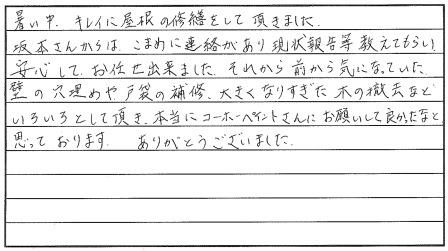 暑い中、キレイに屋根の修繕をして頂きました。
坂本さんからは、こまめに連絡があり現状報告等教えてもらい、
安心して、お任せ出来ました。それから前から気になっていた、
壁の穴埋めや戸袋の補修、大きくなりすぎた木の撤去など
いろいろとして頂き、本当にコーホーペイントさんにお願いして良かったなと
思っております。 ありがとうございました。